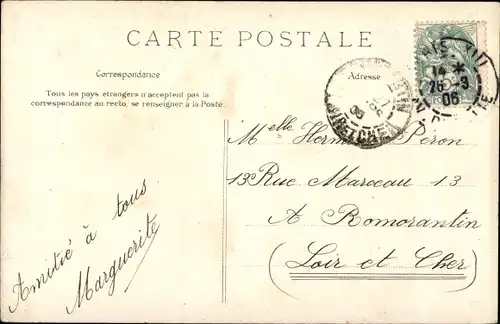 CARTE POSTALE
Correspondance
Tous les pays étrangers n'acceptent pas la
correspondance au recto, se renseigner à la Poste.
Adresse
14 *
25 -3
06
LOIR-ET-CHER
Melle Péron
13 Rue Marceau 13
A Romorantin
(Loir et Cher)
Amitié à tous
Marguerite